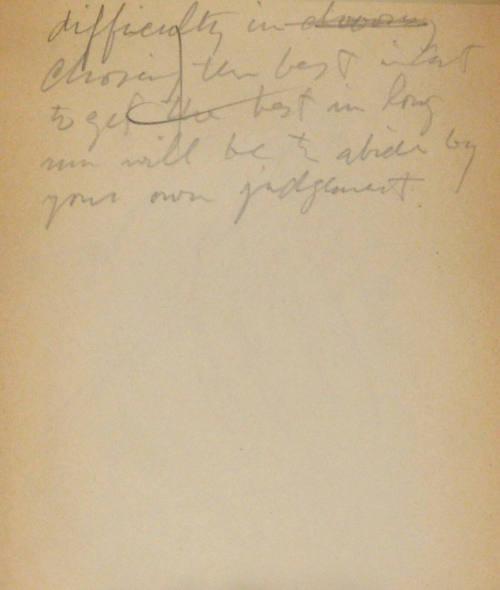 difficulty in choosing
Chosing the best
to get the best in long
run will be to abide by
your own judgement